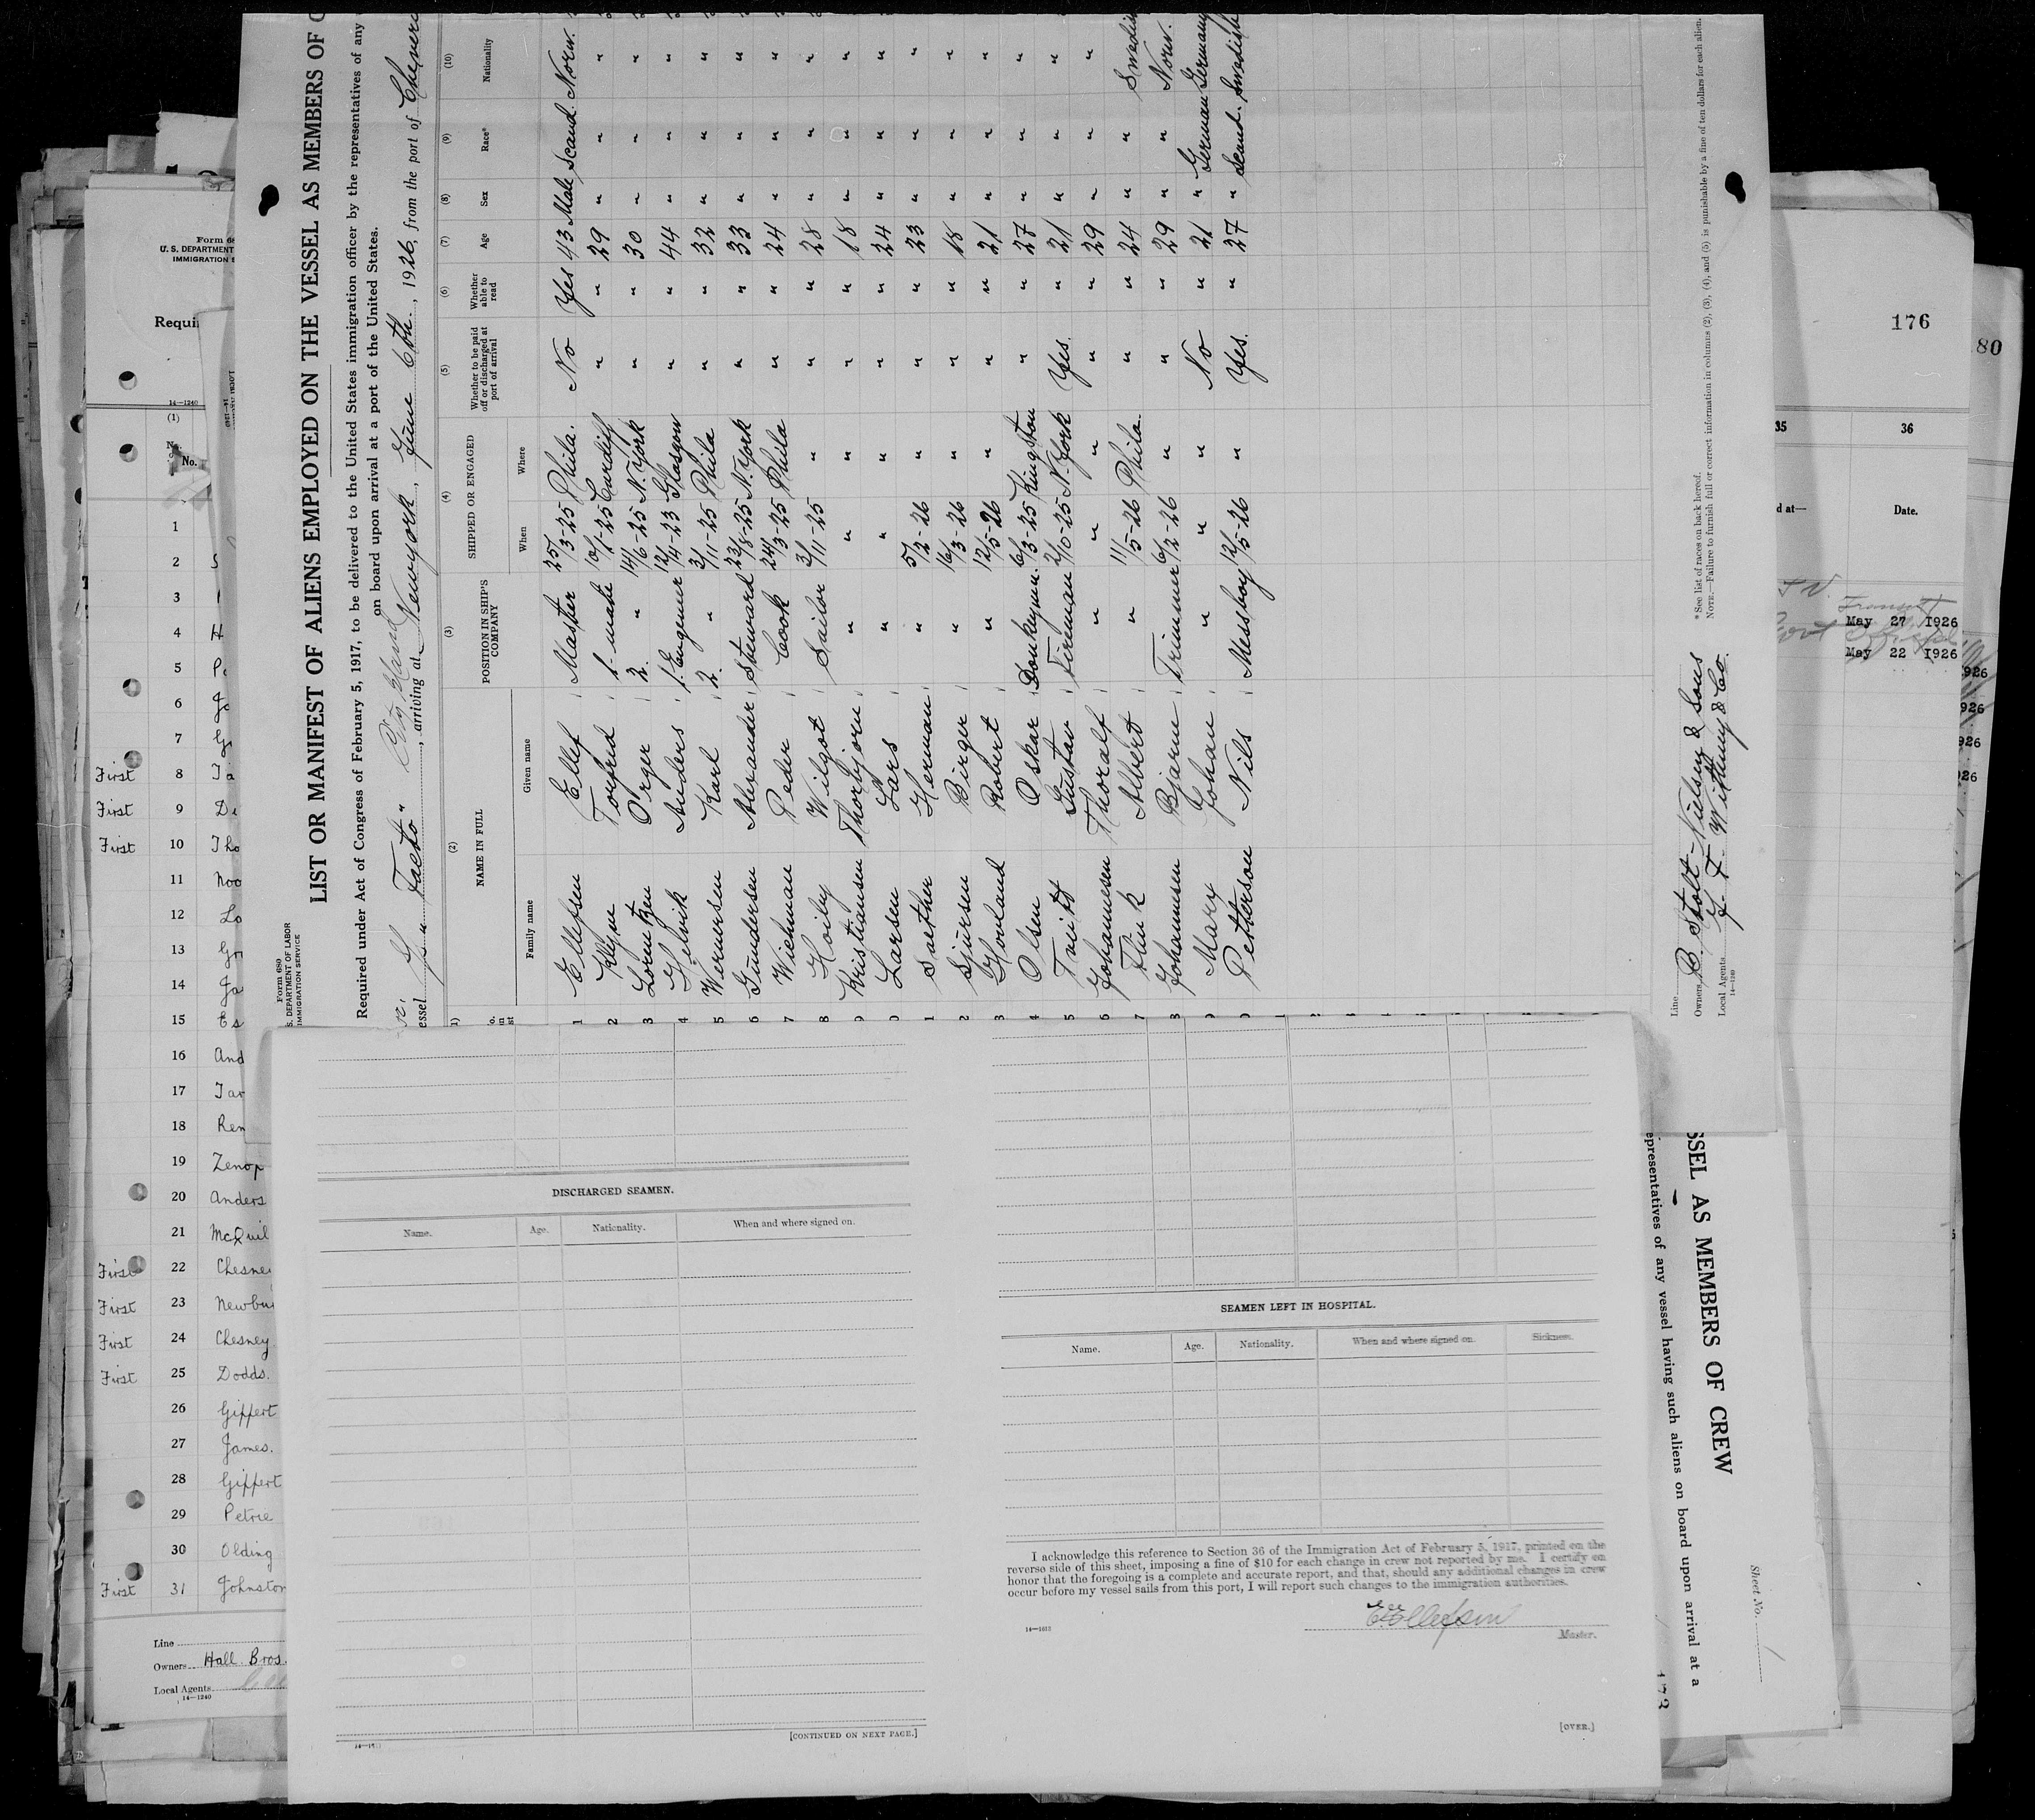 Form 680
S. DEPARTMENT OF LABOR
IMMIGRATION SERVICE
LIST OR MANIFEST OF ALIENS EMPLOYED ON THE VESSEL AS MEMBERS OF C
Required under Act of Congress of February 5, 1917, to be delivered to the United States immigration officer by the representatives of any
on board upon arrival at a port of the United States.
essel "Facto", arriving at Newyork, June 6th, 1926, from the port of
(2) (3) (4) (5) (6) (7) (8) (9) (10)
NAME IN FULL POSITION IN SHIP'S COMPANY SHIPPED OR ENGAGED Whether to be paid off or discharged at port of arrival Whether able to read Age Sex Race* Nationality
Family name Given name When Where
1 Ellefsen Ellef Master 25/3-25 Phila. No Yes 43 Male Scand. Norw.
2 Kleyn Torfrid 1. mate 10/1-25 Cardiff " " 29 " " "
3 Lorentzen Orger 2. " 14/6-25 N. York " " 30 " " "
4 Helvik Anders 1. Engeneer 12/4-23 Glasgow " " 44 " " "
5 Wernersen Karl 2. " 3/11-25 Phila " " 32 " " "
6 Gundersen Alexander Steward 23/8-25 N. York " " 33 " " "
7 Wichman Peder Cook 24/3-25 Phila " " 24 " " "
8 Hoiby Wilgot Sailor 3/11-25 " " " 28 " " "
9 Kristiansen Thorbjorn " " " " " 18 " " "
0 Larsen Lars " " " " " 24 " " "
1 Saether Herman " 5/2-26 " " " 23 " " "
2 Sjursen Birger " 16/3-26 " " " 18 " " "
3 Hovland Robert " 12/5-26 " " " 21 " " "
4 Olsen Oskar Donkeymn. 6/3-25 Kingston " " 27 " " "
5 Tveitt Gustav Fireman 2/10-25 N. York Yes. " 21 " " "
6 Johannesen Thoralf " " " " " 29 " " "
7 Funk Albert " 11/5-26 Phila. " " 24 " "
8 Johannesen Bjarne Trimmer 6/2-26 " " " 29 " " Norw.
9 Marx Johan " " " No " 21 " German Germany
0 Petterson Nils Messboy 12/5-26 " Yes. " 27 " Scand. Swedish
Line
Owners B. Stolt-Nielsen & Sons
Local Agents J. F. Wittney & Co.
14—1240
*See list of races on back hereof.
NOTE.—Failure to furnish full or correct information in columns (2), (3), (4), and (5) is punishable by a fine of ten dollars for each alien.
U. S. DEPARTMENT
14—1240
(1)
No.
1
2
3
4 H
5
6
7
First 8
First 9
First 10 Tho
11 Noo
12 Lo
13
14 Ja
15 Es
16 And
17 Tar
18 Ren
19 Zenop
20 Anders
21 McQuil
First 22 Chesney
First 23 Newbu
First 24 Chesney
First 25 Dodds.
26 Gippert
27 James.
28 Gippert
29 Petrie
30 Olding
First 31 Johnston
Line
Owners Hall. Bros.
Local Agents
14—1240
176
80
35 36
d at— Date.
May 27 1926
May 22 1926
DISCHARGED SEAMEN.
Name. Age. Nationality. When and where signed on.
[CONTINUED ON NEXT PAGE.]
SEAMEN LEFT IN HOSPITAL.
Name. Age. Nationality. When and where signed on. Sickness.
I acknowledge this reference to Section 36 of the Immigration Act of February 5, 1917, printed on the
reverse side of this sheet, imposing a fine of $10 for each change in crew not reported by me. I certify on
honor that the foregoing is a complete and accurate report, and that, should any additional changes in crew
occur before my vessel sails from this port, I will report such changes to the immigration authorities.
E. Ellefsen
Master.
[OVER.]
SSEL AS MEMBERS OF CREW
epresentatives of any vessel having such aliens on board upon arrival at a
Sheet No.